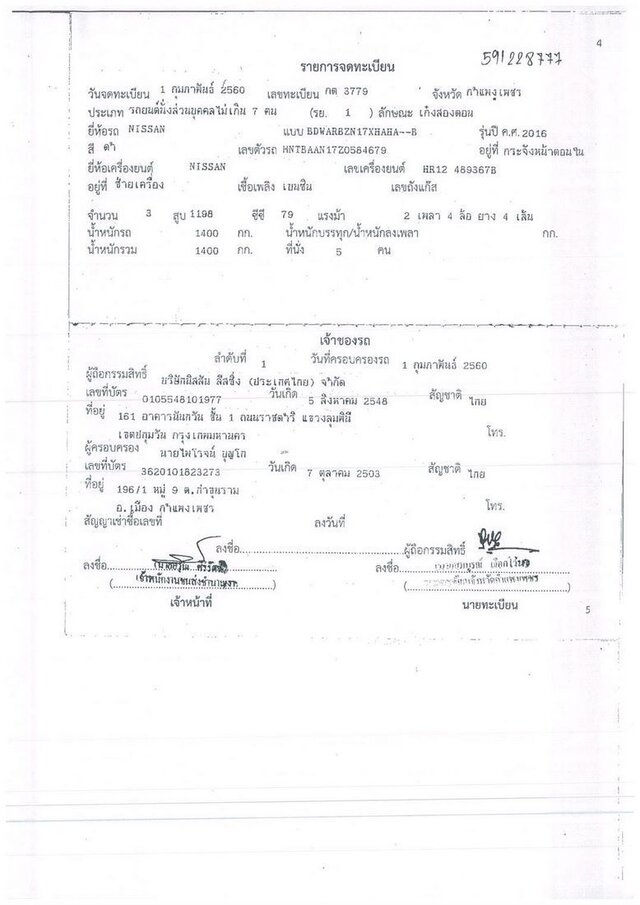 4
591228777
รายการจดทะเบียน
วันจดทะเบียน 1 กุมภาพันธ์ 2560 เลขทะเบียน กต 3779 จังหวัด กำแพงเพชร
ประเภท รถยนต์นั่งส่วนบุคคลไม่เกิน 7 คน (รย. 1 ) ลักษณะ เก๋งสองตอน
ยี่ห้อรถ NISSAN แบบ BDWARBZN17XHAHA--B รุ่นปี ค.ศ. 2016
สี ดำ เลขตัวรถ HNTBAAN17Z0584679 อยู่ที่ กระจังหน้าตอนใน
ยี่ห้อเครื่องยนต์ NISSAN เลขเครื่องยนต์ HR12 489367B
อยู่ที่ ซ้ายเครื่อง เชื้อเพลิง เบนซิน เลขถังแก๊ส
จำนวน 3 สูบ 1198 ซีซี 79 แรงม้า 2 เพลา 4 ล้อ ยาง 4 เส้น
น้ำหนักรถ 1400 กก. น้ำหนักบรรทุก/น้ำหนักลงเพลา กก.
น้ำหนักรวม 1400 กก. ที่นั่ง 5 คน
เจ้าของรถ
ลำดับที่ 1 วันที่ครอบครองรถ 1 กุมภาพันธ์ 2560
ผู้ถือกรรมสิทธิ์ บริษัทนิสสัน ลีสซิ่ง (ประเทศไทย) จำกัด
เลขที่บัตร 0105548101977 วันเกิด 5 สิงหาคม 2548 สัญชาติ ไทย
ที่อยู่ 161 อาคารนันทวัน ชั้น 1 ถนนราชดำริ แขวงลุมพินี
เขตปทุมวัน กรุงเทพมหานคร โทร.
ผู้ครอบครอง นายไพโรจน์ บุญโท
เลขที่บัตร 3620101823273 วันเกิด 7 ตุลาคม 2503 สัญชาติ ไทย
ที่อยู่ 196/1 หมู่ 9 ต.ท่าขุนราม
อ.เมือง กำแพงเพชร โทร.
สัญญาเช่าซื้อเลขที่ ลงวันที่
ลงชื่อ ผู้ถือกรรมสิทธิ์
ลงชื่อ ลงชื่อ
เจ้าพนักงานขนส่งชำนาญงาน
เจ้าหน้าที่ นายทะเบียน
5